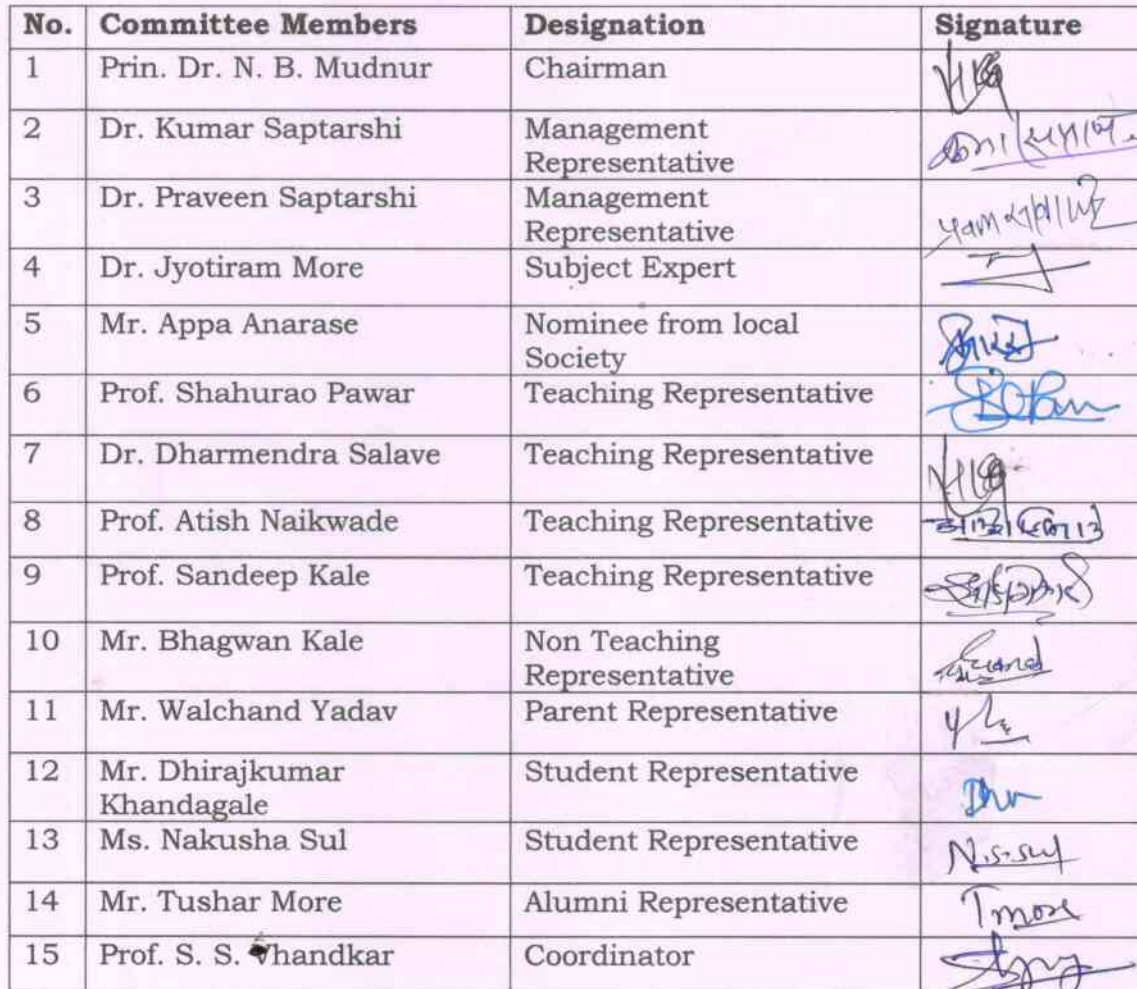 No. Committee Members Designation Signature
1 Prin. Dr. N. B. Mudnur Chairman
2 Dr. Kumar Saptarshi Management
Representative
3 Dr. Praveen Saptarshi Management
Representative
4 Dr. Jyotiram More Subject Expert
5 Mr. Appa Anarase Nominee from local
Society
6 Prof. Shahurao Pawar Teaching Representative
7 Dr. Dharmendra Salave Teaching Representative
8 Prof. Atish Naikwade Teaching Representative
9 Prof. Sandeep Kale Teaching Representative
10 Mr. Bhagwan Kale Non Teaching
Representative
11 Mr. Walchand Yadav Parent Representative
12 Mr. Dhirajkumar Student Representative
Khandagale
13 Ms. Nakusha Sul Student Representative N.S.Sul
14 Mr. Tushar More Alumni Representative Tmore
15 Prof. S. S. Vhandkar Coordinator